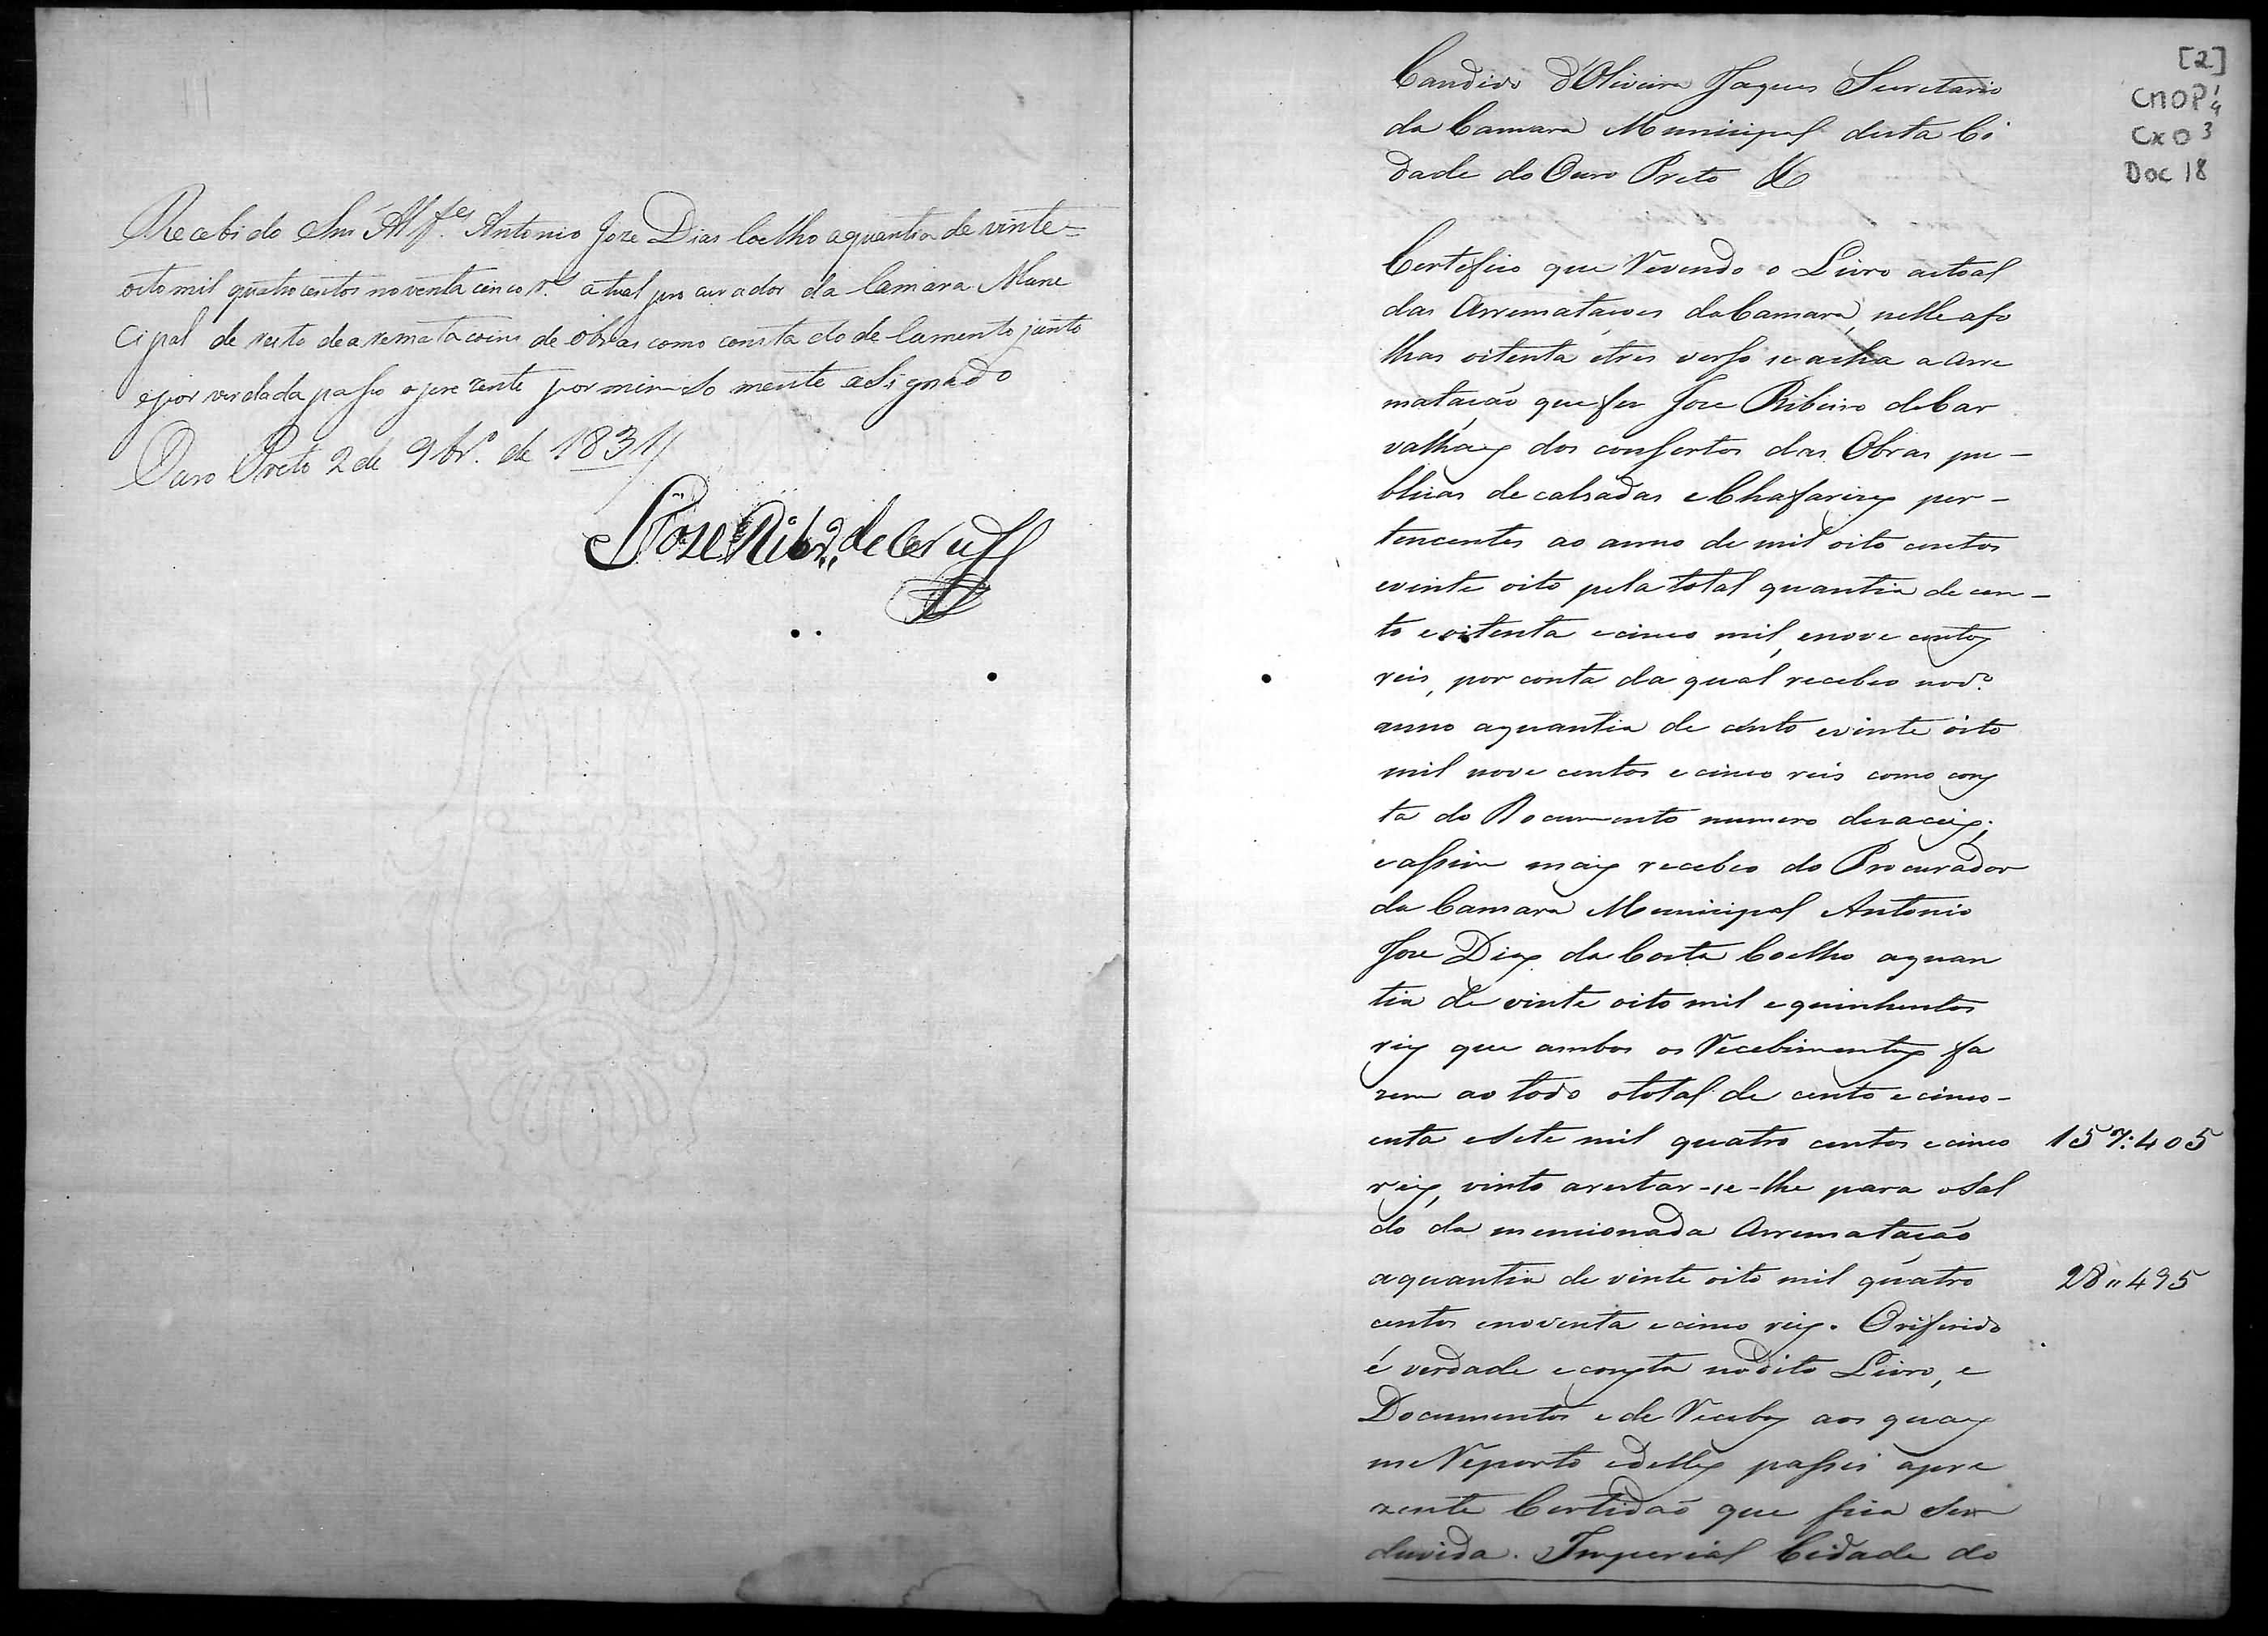 Recebi do Snr Alfes Antonio Joze Dias Coelho aquantia de vinte=
oito mil quatrocentos noventa cinco rs atual procurador da Camara Mune
cipal de resto de arematacoins de obras como consta do documento junto
epor verdada passo opre zente por mim só mente asignado
Ouro Preto 2 de 9br.º de 1831//
Joze Ribr.º de Carvº
[2]
CMOP 1/4
Cx 03
Doc 18
Candido d'Oliveira Jaques Secretario
da Camara Municipal desta Ci
dade do Ouro Preto &
Certefico que Revendo o Livro actoal
das Arremataçoes da Camara, nelle afo
lhas oitenta etres verso se acha a Arre
matação que fez Joze Ribeiro de Car
valhaes dos consertos das Obras pu-
blicas de calsadas e Chafarizes per-
tencentes ao anno de mil oito centos
evinte oito pela total quantia de cen-
to e oitenta e cinco mil, enove centos
reis, por conta da qual recebeo no d.º
anno aquantia de cento evinte oito
mil nove centos e cinco reis como cons
ta do Documento numero dezaceis;
eassim mais recebeo do Procurador
da Camara Municipal Antonio
Joze Dias da Costa Coelho aquan
tia de vinte oito mil e quinhentos
reis que ambos os Recebimentos fa
zem ao todo ototal de cento e cinco-
enta esete mil quatro centos e cinco 157:405
reis, vinto arestar-se-lhe para osal
do da mencionada Arrematação
aquantia de vinte oito mil quatro 28,,495
centos enoventa e cinco reis. Oriferido
é verdade e consta nodito Livro, e
Documentos e de Recebos aos quaes
me Reporto edelles passei apre
zente Certidão que fica sem
duvida. Imperial Cidade do